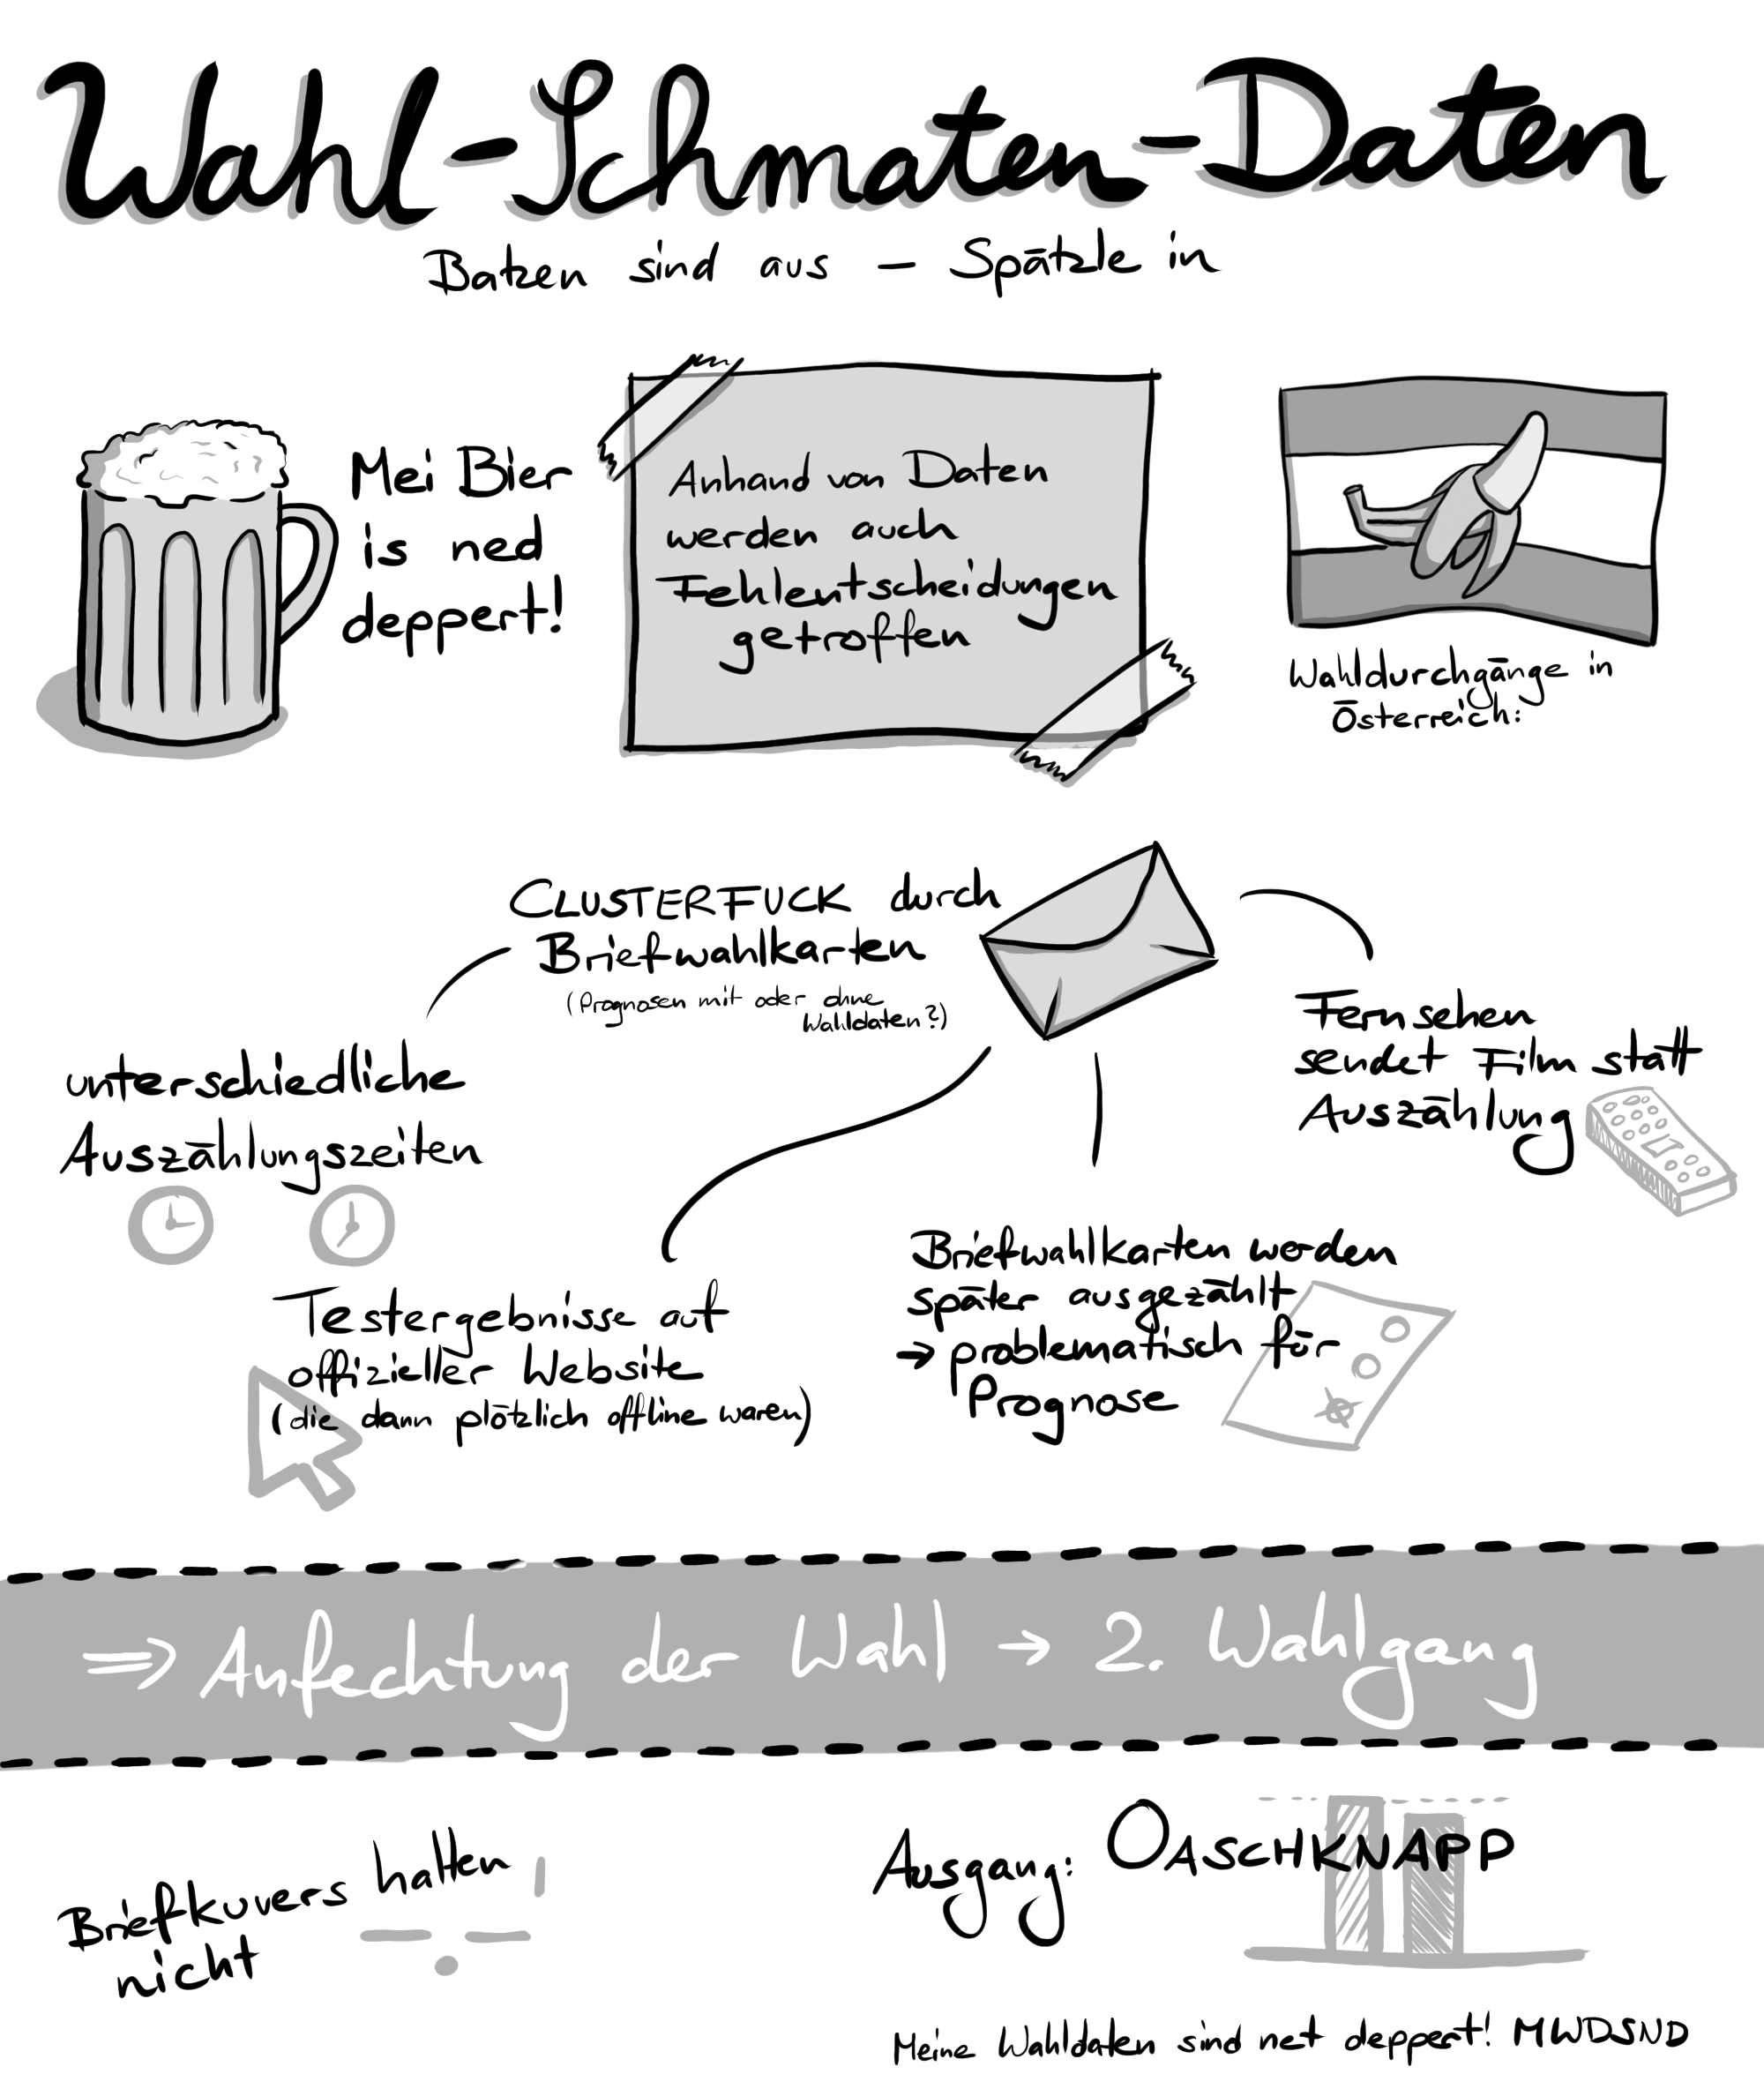 Wahl-Schmaten-Daten
Batzen sind aus - Spätzle in
Mei Bier
is ned
deppert!
Anhand von Daten
werden auch
Fehlentscheidungen
getroffen
Wahldurchgänge in
Österreich:
CLUSTERFUCK durch
Briefwahlkarten
(Prognosen mit oder ohne
Wahldaten?)
unterschiedliche
Auszählungszeiten
Fernsehen
sendet Film statt
Auszählung
Testergebnisse auf
offizieller Website
(die dann plötzlich offline waren)
Briefwahlkarten werden
später ausgezählt
→ problematisch für
Prognose
⇒ Anfechtung der Wahl → 2. Wahlgang
Briefkuvers halten
nicht
Ausgang: OASCHKNAPP
Meine Wahldaten sind net deppert! MWDSND